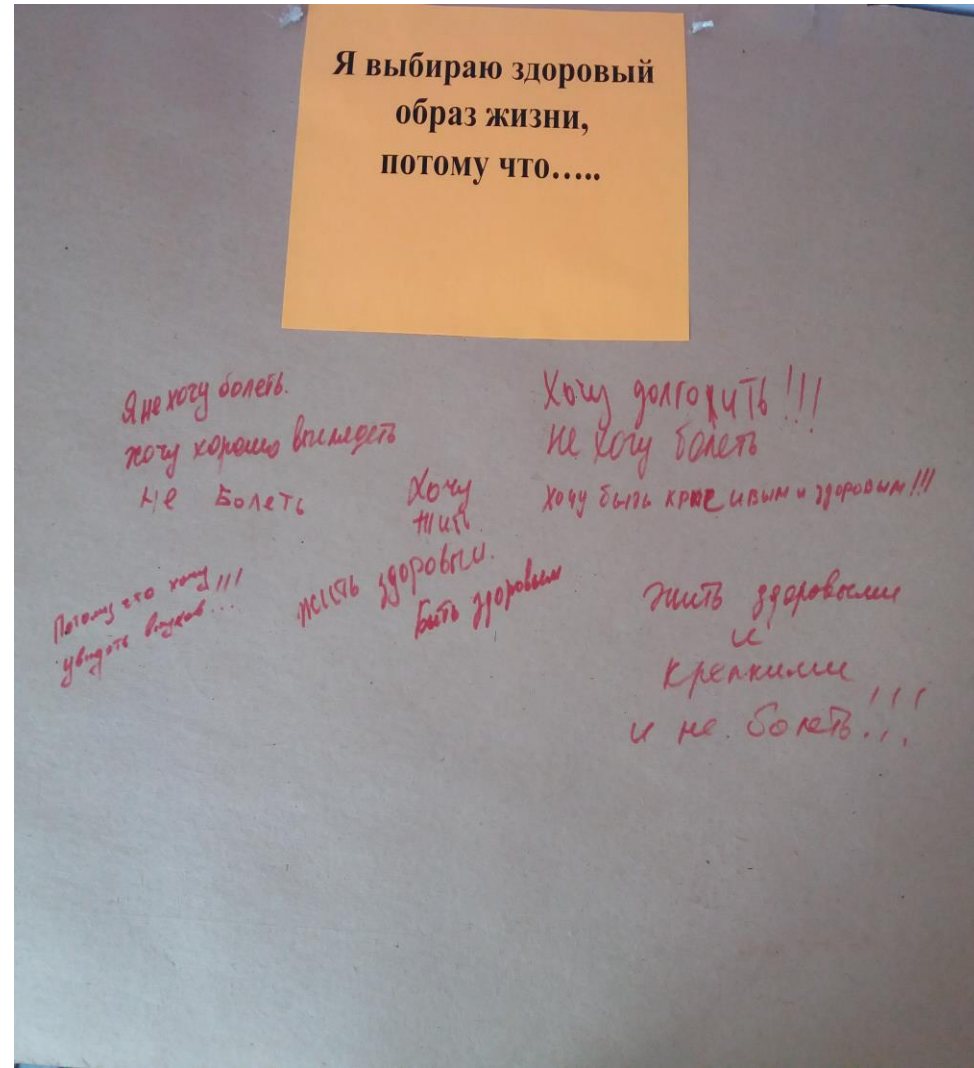 Я выбираю здоровый
образ жизни,
потому что.....
Я не хочу болеть.
хочу хорошо выглядеть
Не Болеть
Хочу
жить
Хочу долго жить!!!
не хочу болеть
хочу быть красивым и здоровым!!!
Потому что хочу
увидеть внуков...!!!
жить здоровым.
Быть здоровым
Жить здоровыми
и
крепкими
и не болеть!!!